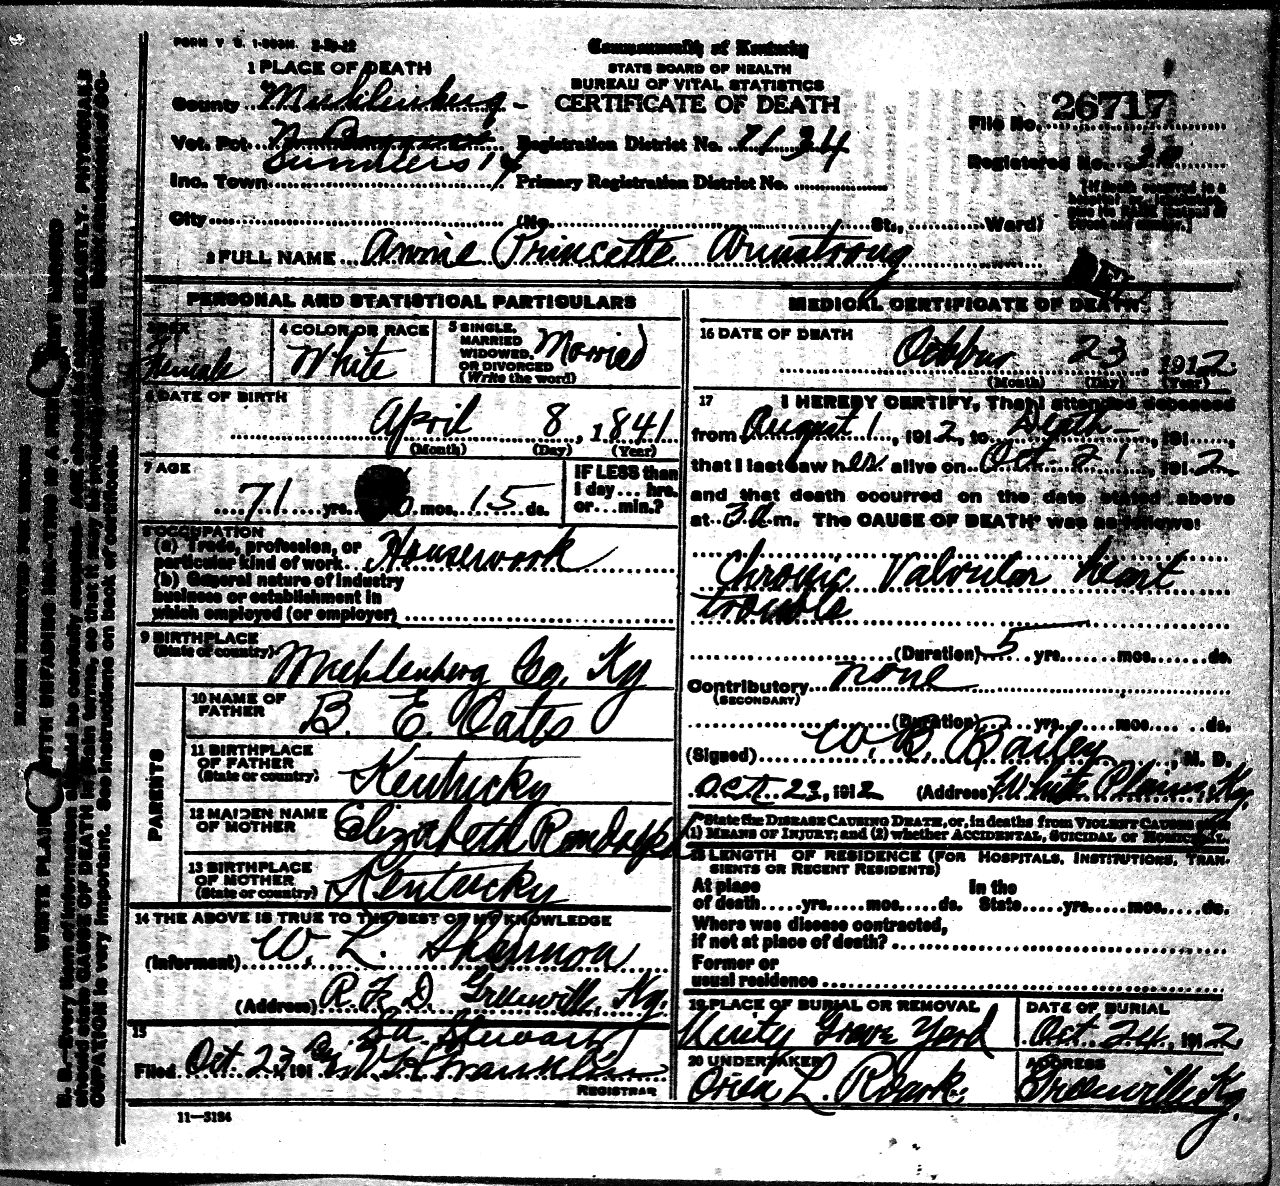 FORM V. S. 1-
Commonwealth of Kentucky
STATE BOARD OF HEALTH
BUREAU OF VITAL STATISTICS
CERTIFICATE OF DEATH
1 PLACE OF DEATH
County Muhlenberg
File No. 26717
Vot. Pct.
Registration District No. 7134
Registered No.
Inc. Town
Primary Registration District No.
City (No. St., Ward)
2 FULL NAME Annie Princette Armstrong
PERSONAL AND STATISTICAL PARTICULARS
3 SEX Female
4 COLOR OR RACE White
5 SINGLE, MARRIED WIDOWED, OR DIVORCED (Write the word) Married
6 DATE OF BIRTH
April 8, 1841
(Month) (Day) (Year)
7 AGE
71 yrs. 6 mos. 15 ds.
IF LESS than 1 day ... hrs. or ... min.?
8 OCCUPATION
(a) Trade, profession, or particular kind of work Housework
(b) General nature of industry
business or establishment in
which employed (or employer)
9 BIRTHPLACE
(State or country) Muhlenberg Co, Ky
PARENTS
10 NAME OF FATHER B. E. Oates
11 BIRTHPLACE OF FATHER (State or country) Kentucky
12 MAIDEN NAME OF MOTHER Elizabeth Randolph
13 BIRTHPLACE OF MOTHER (State or country) Kentucky
14 THE ABOVE IS TRUE TO THE BEST OF MY KNOWLEDGE
(Informant) W. L. Shannon
(Address) R. F. D. Greenville, Ky.
15
Filed Oct 27, 191 Franklin
REGISTRAR
11—3184
MEDICAL CERTIFICATE OF DEATH
16 DATE OF DEATH
October 23, 1912
(Month) (Day) (Year)
17 I HEREBY CERTIFY, That I attended deceased
from August 1, 1912, to Death, 191
that I last saw her alive on Oct 21, 1912
and that death occurred on the date stated above
at 3 a m. The CAUSE OF DEATH* was as follows:
Chronic Valvular heart
trouble
(Duration) 5 yrs. mos. ds.
Contributory none
(SECONDARY)
(Duration) yrs. mos. ds.
(Signed) W. B. Bailey, M. D.
Oct. 23, 1912 (Address) White Plains Ky.
*State the DISEASE CAUSING DEATH, or, in deaths from VIOLENT CAUSES
(1) MEANS OF INJURY; and (2) whether ACCIDENTAL, SUICIDAL or HOMICIDAL.
18 LENGTH OF RESIDENCE (FOR HOSPITALS, INSTITUTIONS, TRAN-
SIENTS OR RECENT RESIDENTS)
At place of death yrs. mos. ds. In the State yrs. mos. ds.
Where was disease contracted,
if not at place of death?
Former or
usual residence
19 PLACE OF BURIAL OR REMOVAL
Unity Grave Yard
DATE OF BURIAL
Oct. 24, 1912
20 UNDERTAKER
Orien L. Roark.
ADDRESS
Greenville Ky.